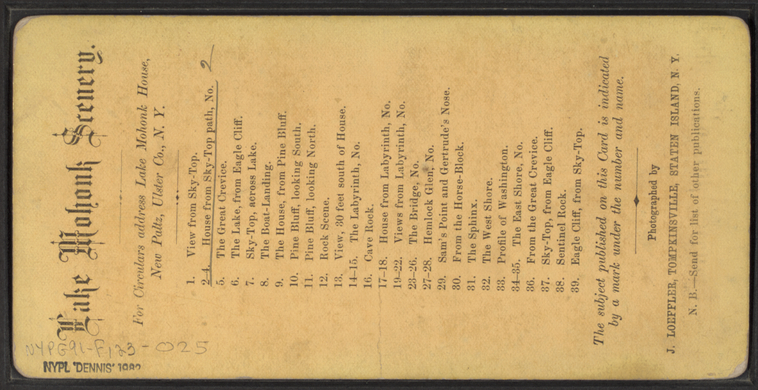 Lake Mohonk Scenery.
For Circulars address Lake Mohonk House,
New Paltz, Ulster Co., N. Y.
1. View from Sky-Top.
2-4. House from Sky-Top path, No. 2
5. The Great Crevice.
6. The Lake, from Eagle Cliff.
7. Sky-Top, across Lake.
8. The Boat-Landing.
9. The House, from Pine Bluff.
10. Pine Bluff, looking South.
11. Pine Bluff, looking North.
12. Rock Scene.
13. View, 30 feet south of House.
14-15. The Labyrinth, No.
16. Cave Rock.
17-18. House from Labyrinth, No.
19-22. Views from Labyrinth, No.
23-26. The Bridge, No.
27-28. Hemlock Glen, No.
29. Sam's Point and Gertrude's Nose.
30. From the Horse-Block.
31. The Sphinx.
32. The West Shore.
33. Profile of Washington.
34-35. The East Shore, No.
36. From the Great Crevice.
37. Sky-Top, from Eagle Cliff.
38. Sentinel Rock.
39. Eagle Cliff, from Sky-Top.
The subject published on this Card is indicated
by a mark under the number and name.
Photographed by
J. LOEFFLER, TOMPKINSVILLE, STATEN ISLAND, N. Y.
N. B.—Send for list of other publications.
NYPG91-F123-025
NYPL "DENNIS" 1982